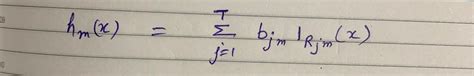 h_m(x) = \sum_{j=1}^{T} b_{jm} 1_{R_{jm}}(x)